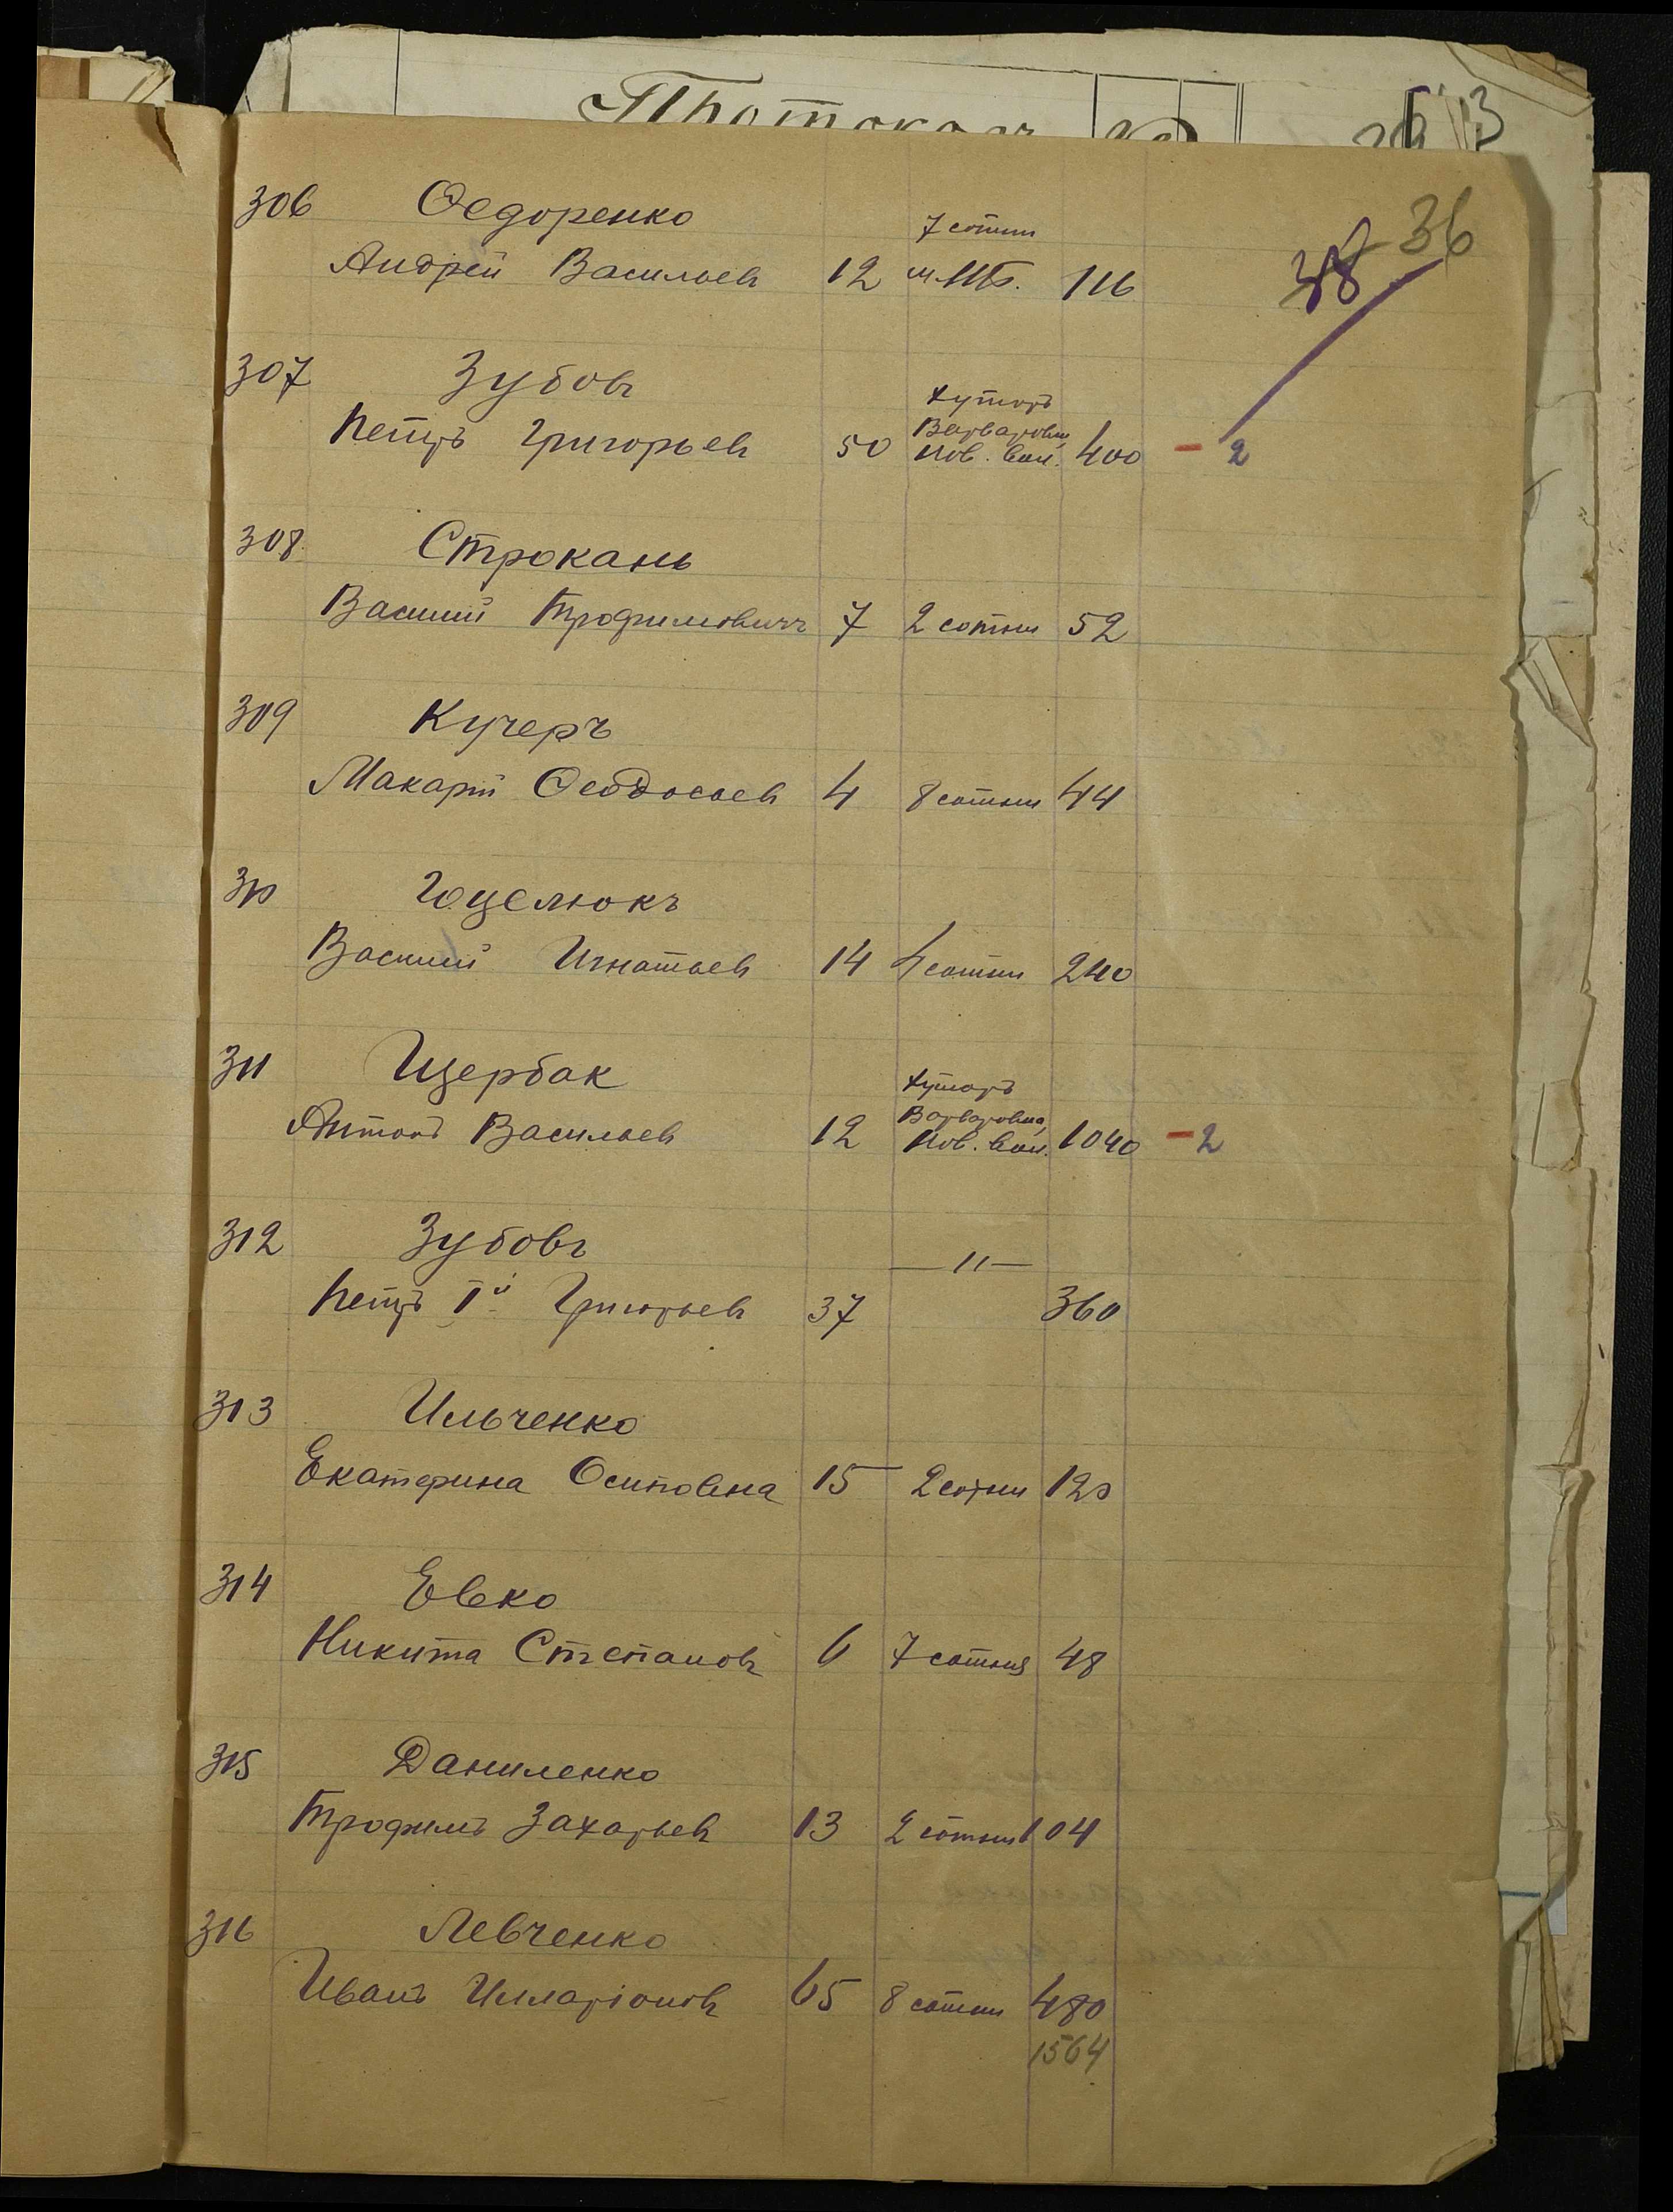 Протоколъ
306 Ѳедоренко
7 сотни
Андрей Васильев 12 м. Шб. 116
36
38
307 Зубовъ
хуторъ
Варваровка,
Петръ Григорьев 50 Нов. вол. 400 - 2
308 Строкань
Василий Трофимовичъ 7 2 сотни 52
309 Кучеръ
Макарій Ѳеодосьев 4 8 сотни 44
310 Гоцелюкъ
Василий Игнатьев 14 4 сотни 240
311 Щербак
хуторъ
Варваровка,
Антонъ Васильев 12 Нов. вол. 1040 - 2
312 Зубовъ
— 〃 —
Петръ Iй Григорьев 37 360
313 Ильченко
Екатерина Осиповна 15 2 сотни 120
314 Евко
Никита Степановъ 6 7 сотня 48
315 Даниленко
Трофимъ Захарьев 13 2 сотни 104
316 Левченко
Иванъ Илларіонов 65 8 сотни 480
1564